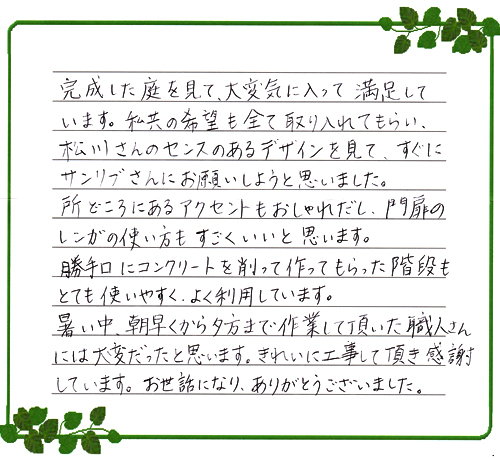 完成した庭を見て、大変気に入って満足して
います。私共の希望も全て取り入れてもらい、
松川さんのセンスのあるデザインを見て、すぐに
サンリブさんにお願いしようと思いました。
所どころにあるアクセントもおしゃれだし、門扉の
レンガの使い方もすごくいいと思います。
勝手口にコンクリートを削って作ってもらった階段も
とても使いやすく、よく利用しています。
暑い中、朝早くから夕方まで作業して頂いた職人さん
には大変だったと思います。きれいに工事して頂き感謝
しています。お世話になり、ありがとうございました。